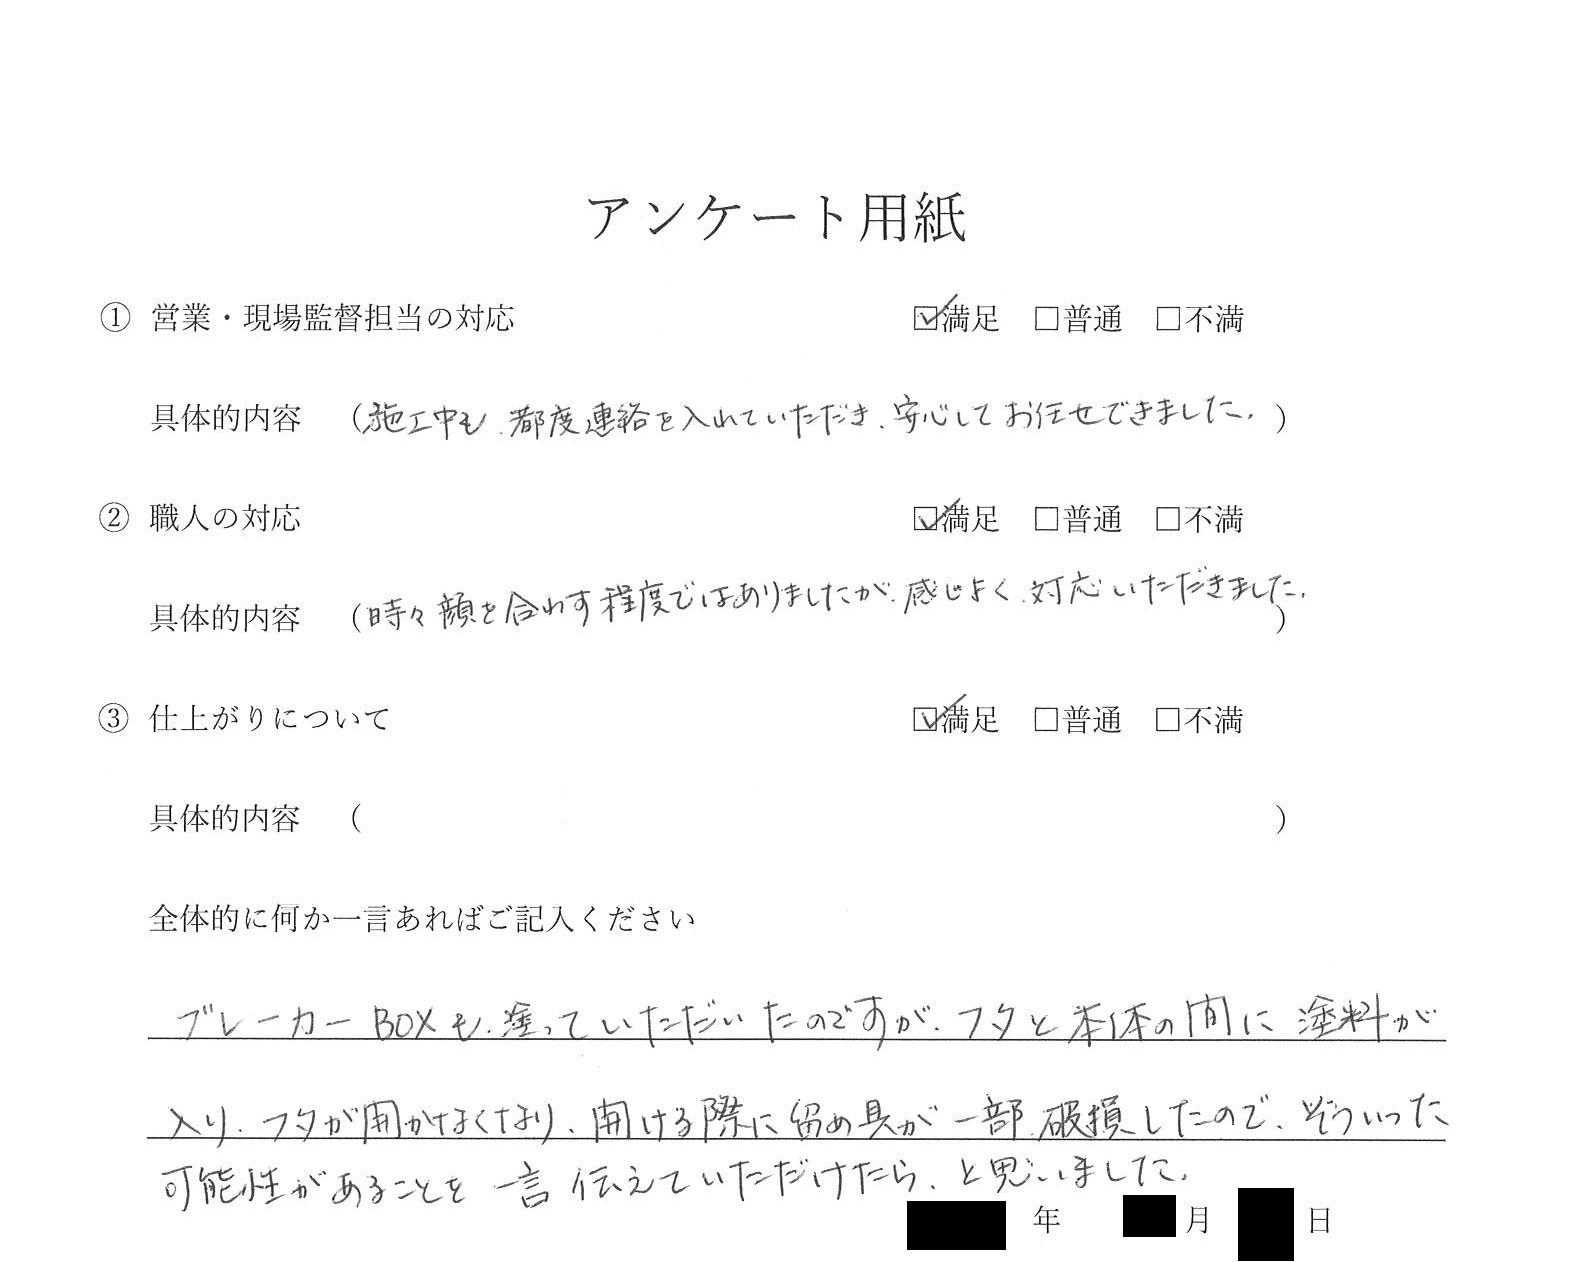 アンケート用紙
① 営業・現場監督担当の対応 ☑満足 □普通 □不満
具体的内容 （施工中も、都度連絡を入れていただき、安心してお任せできました。）
② 職人の対応 ☑満足 □普通 □不満
具体的内容 （時々顔を合わす程度ではありましたが、感じよく、対応いただきました。）
③ 仕上がりについて ☑満足 □普通 □不満
具体的内容 （ ）
全体的に何か一言あればご記入ください
ブレーカーBOXも、塗っていただいたのですが、フタと本体の間に塗料が
入り、フタが開かなくなり、開ける際に留め具が一部、破損したので、そういった
可能性があることを一言伝えていただけたら、と思いました。
年 月 日